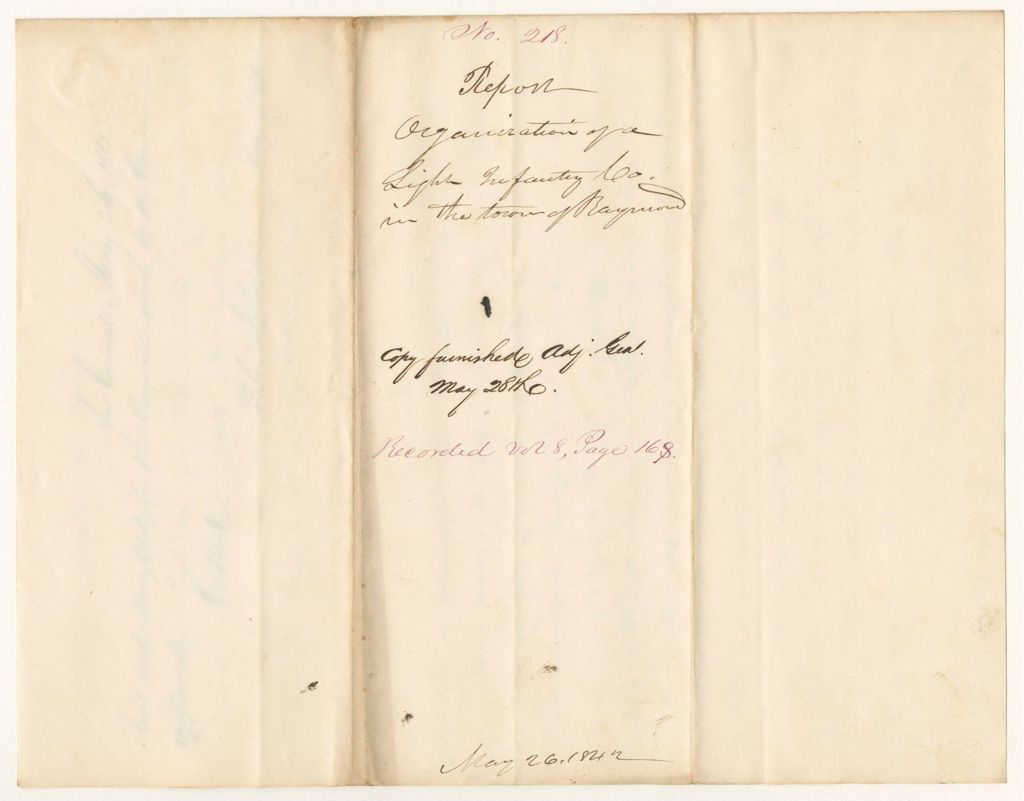 No. 218.
Report
Organization of a
Light Infantry Co.
in the town of Raymond
Copy furnished Adj. Genl.
May 28th.
Recorded Vol 8, Page 168.
May 26. 1842